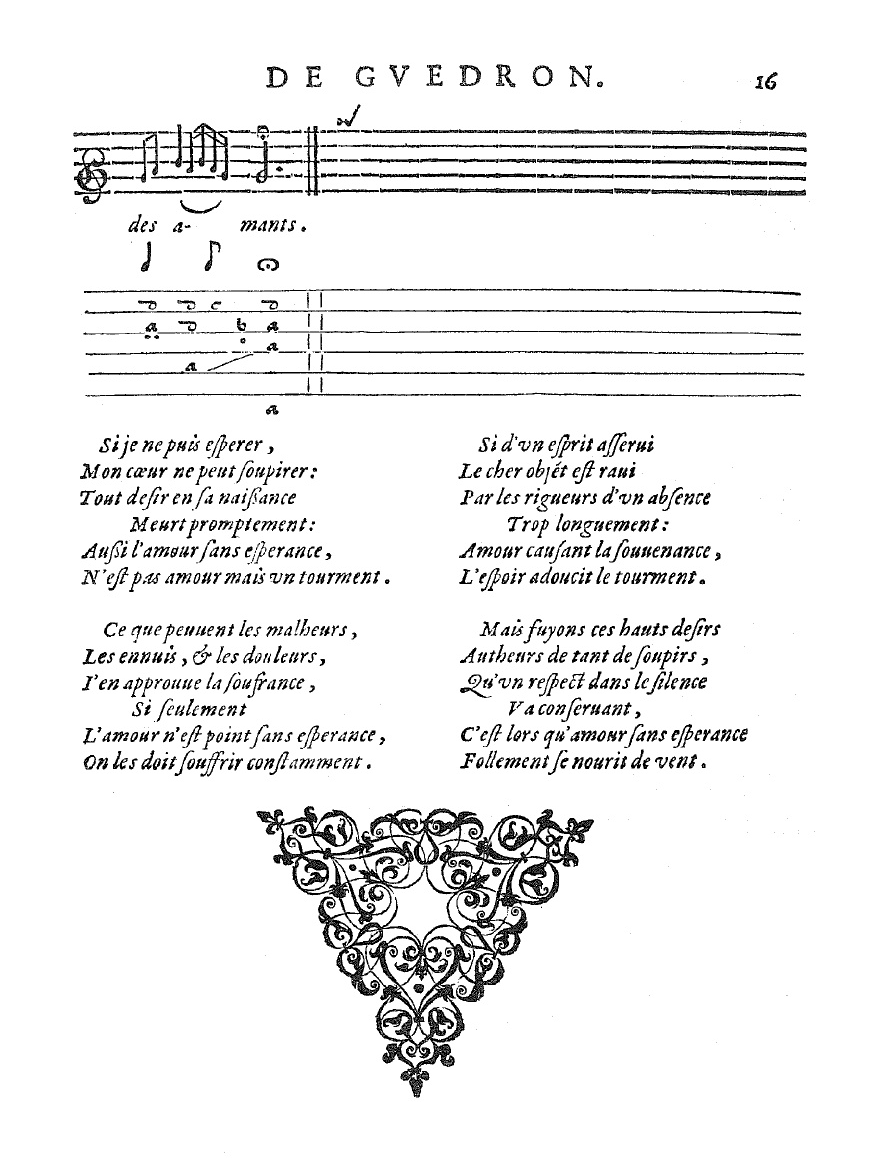 DE GVEDRON. 16
des a- mants.
Si je ne puis eſperer,
Mon cœur ne peut ſoupirer:
Tout deſir en ſa naiſſance
Meurt promptement:
Auſſi l'amour ſans eſperance,
N'eſt pas amour mais vn tourment.
Ce que peuuent les malheurs,
Les ennuis, & les douleurs,
I'en approuue la ſoufrance,
Si ſeulement
L'amour n'eſt point ſans eſperance,
On les doit ſouffrir conſtamment.
Si d'vn eſprit aſſerui
Le cher objét eſt raui
Par les rigueurs d'vn abſence
Trop longuement:
Amour cauſant la ſouuenance,
L'eſpoir adoucit le tourment.
Mais fuyons ces hauts deſirs
Autheurs de tant de ſoupirs,
Qu'vn reſpect dans le ſilence
Va conſeruant,
C'eſt lors qu'amour ſans eſperance
Follement ſe nourit de vent.